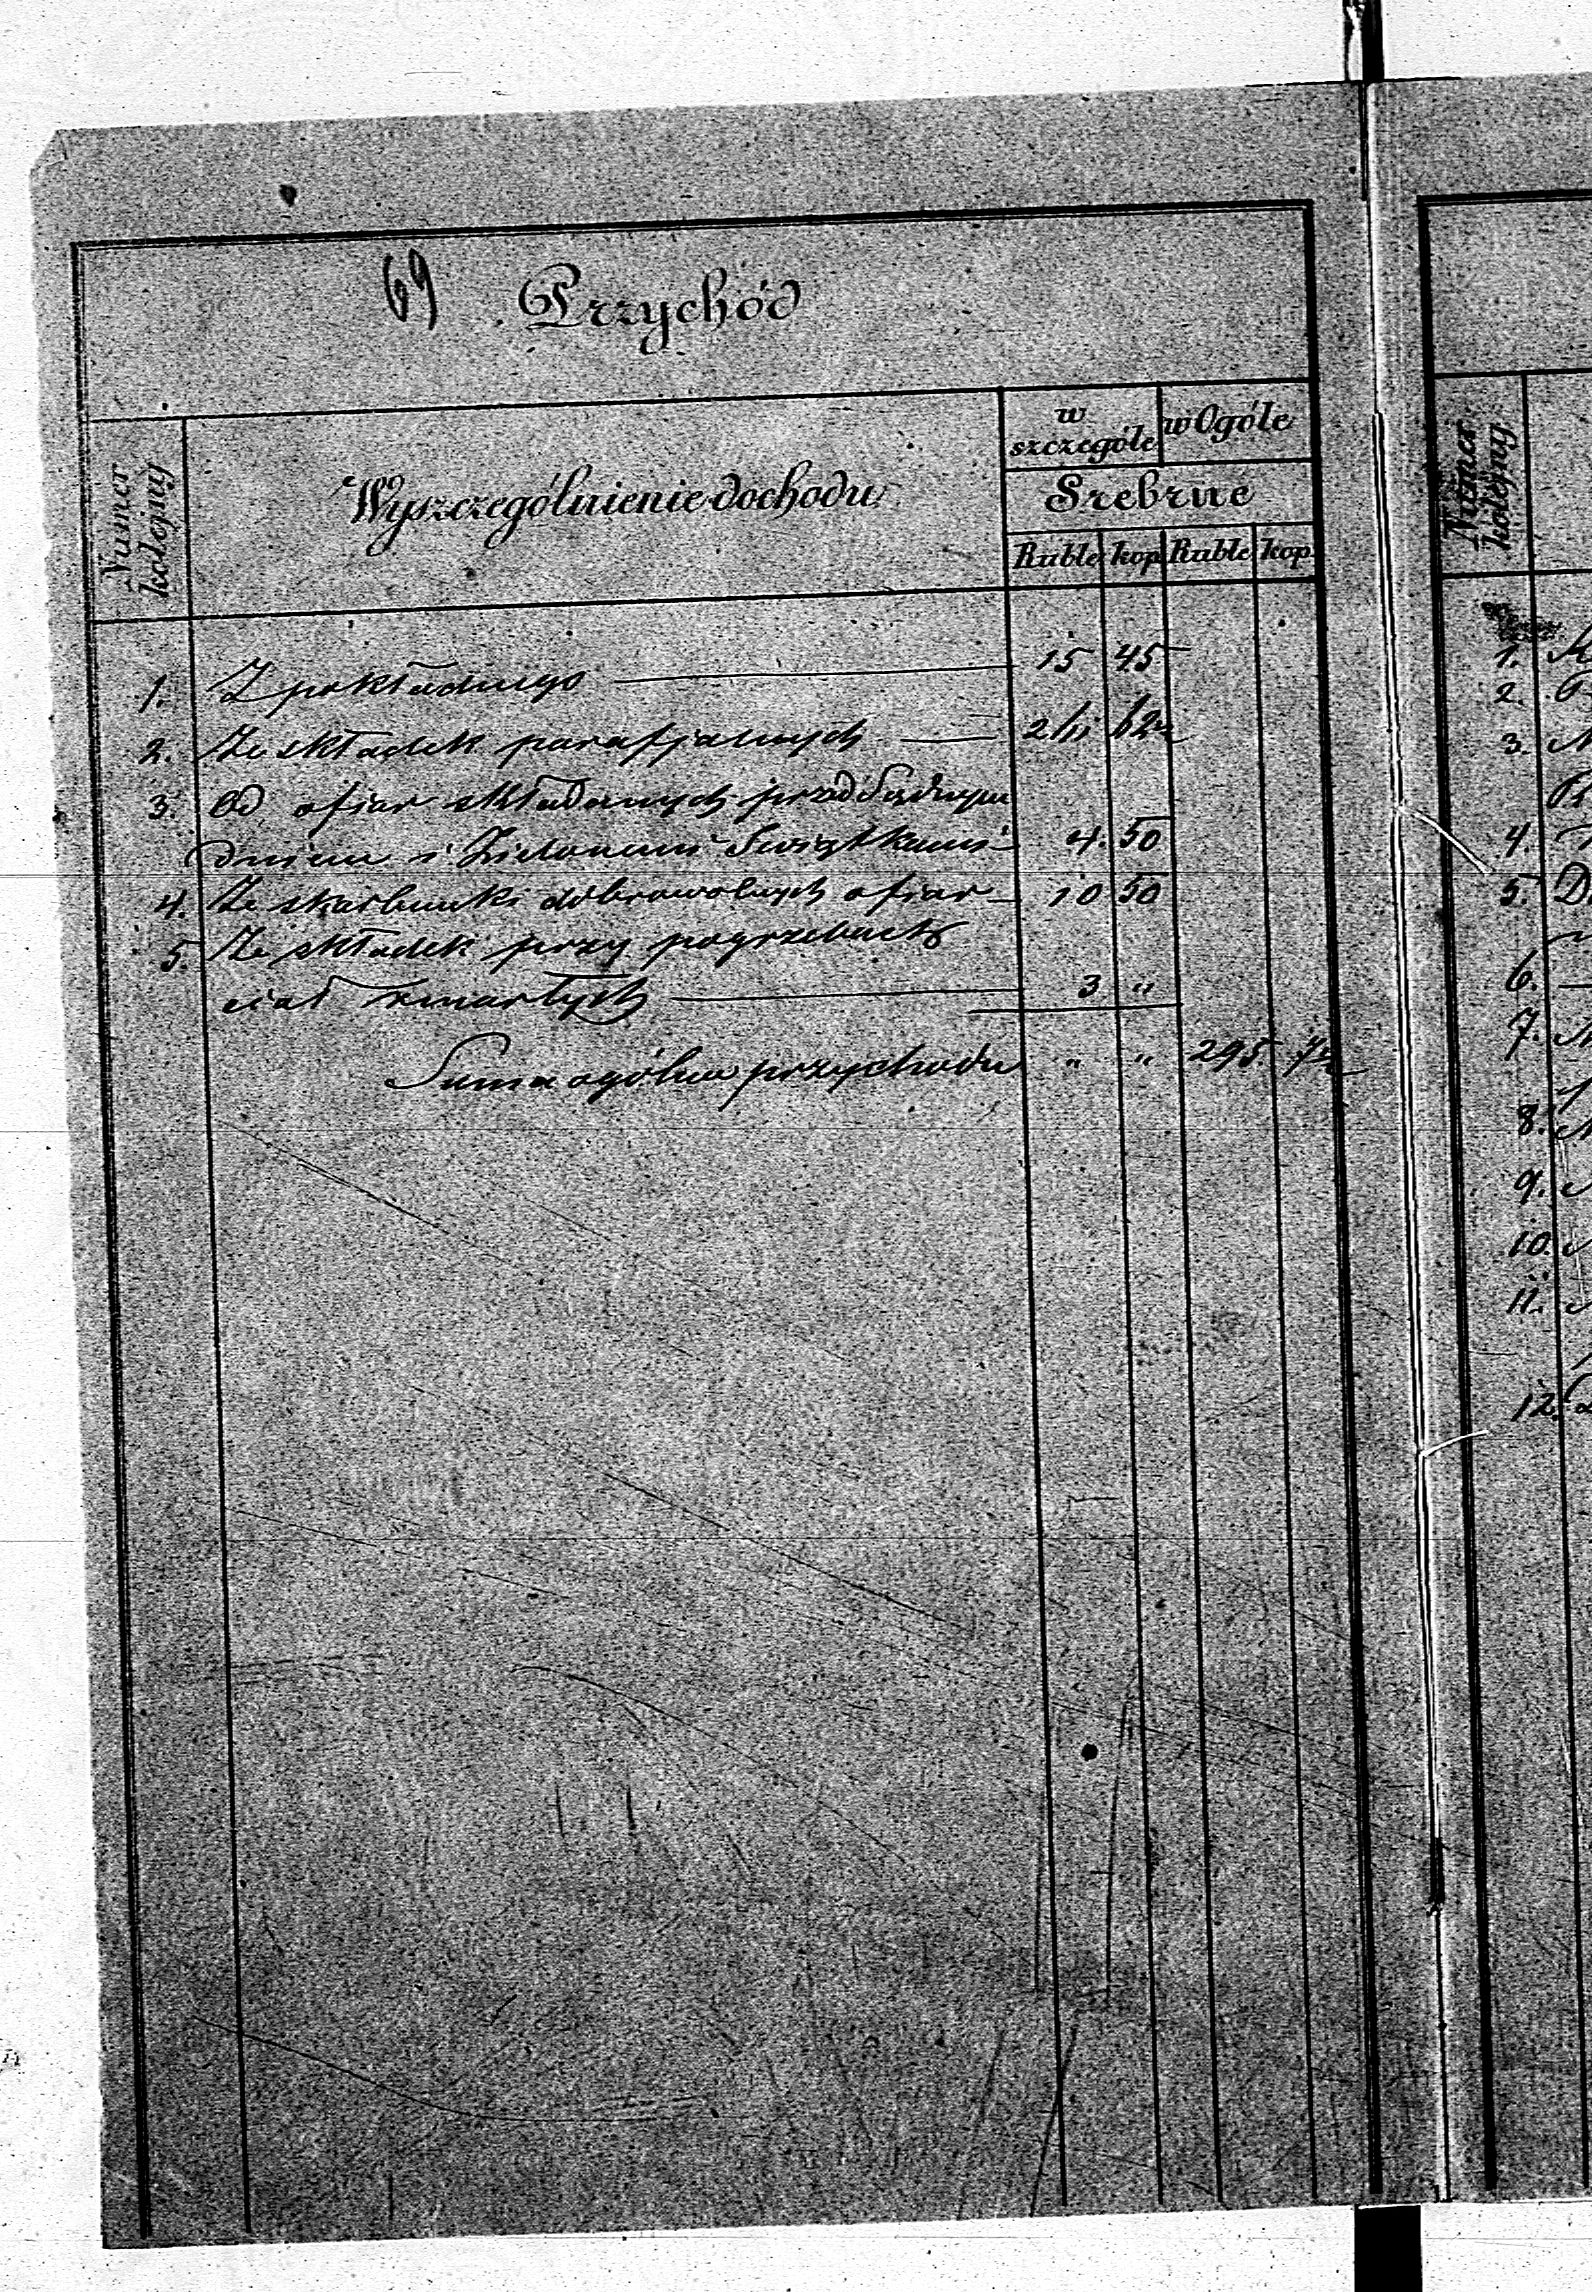 69 Przychód
Numer kolejny
Wyszczególnienie dochodu
w szczególe
w Ogóle
Srebrne
Ruble kop Ruble kop.
1. Z pokładnego 15 45
2. Ze składek parafjalnych 261 62½
3. Od ofiar składanych przed Sądnym
dniem i Zielonemi Swiątkami 4. 50
4. Ze skarbonki dobrowolnych ofiar 10 50
5. Ze składek przy pogrzebach
ciał zmarłych 3 "
Suma ogólna przychodu " " 295 7½
Numer kolejny
1.
2.
3.
4.
5.
6.
7.
8.
9.
10.
11.
12.